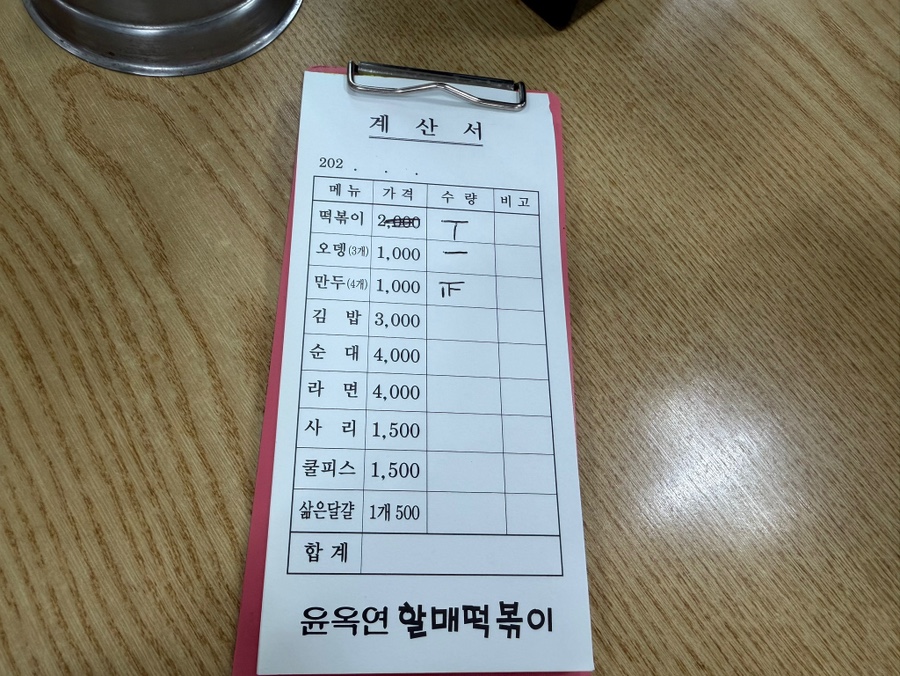 계 산 서
202 . . .
메 뉴 가 격 수 량 비 고
떡볶이 2,000 丅
오뎅(3개) 1,000 一
만두(4개) 1,000 正
김 밥 3,000
순 대 4,000
라 면 4,000
사 리 1,500
쿨피스 1,500
삶은달걀 1개 500
합 계
윤옥연 할매떡볶이